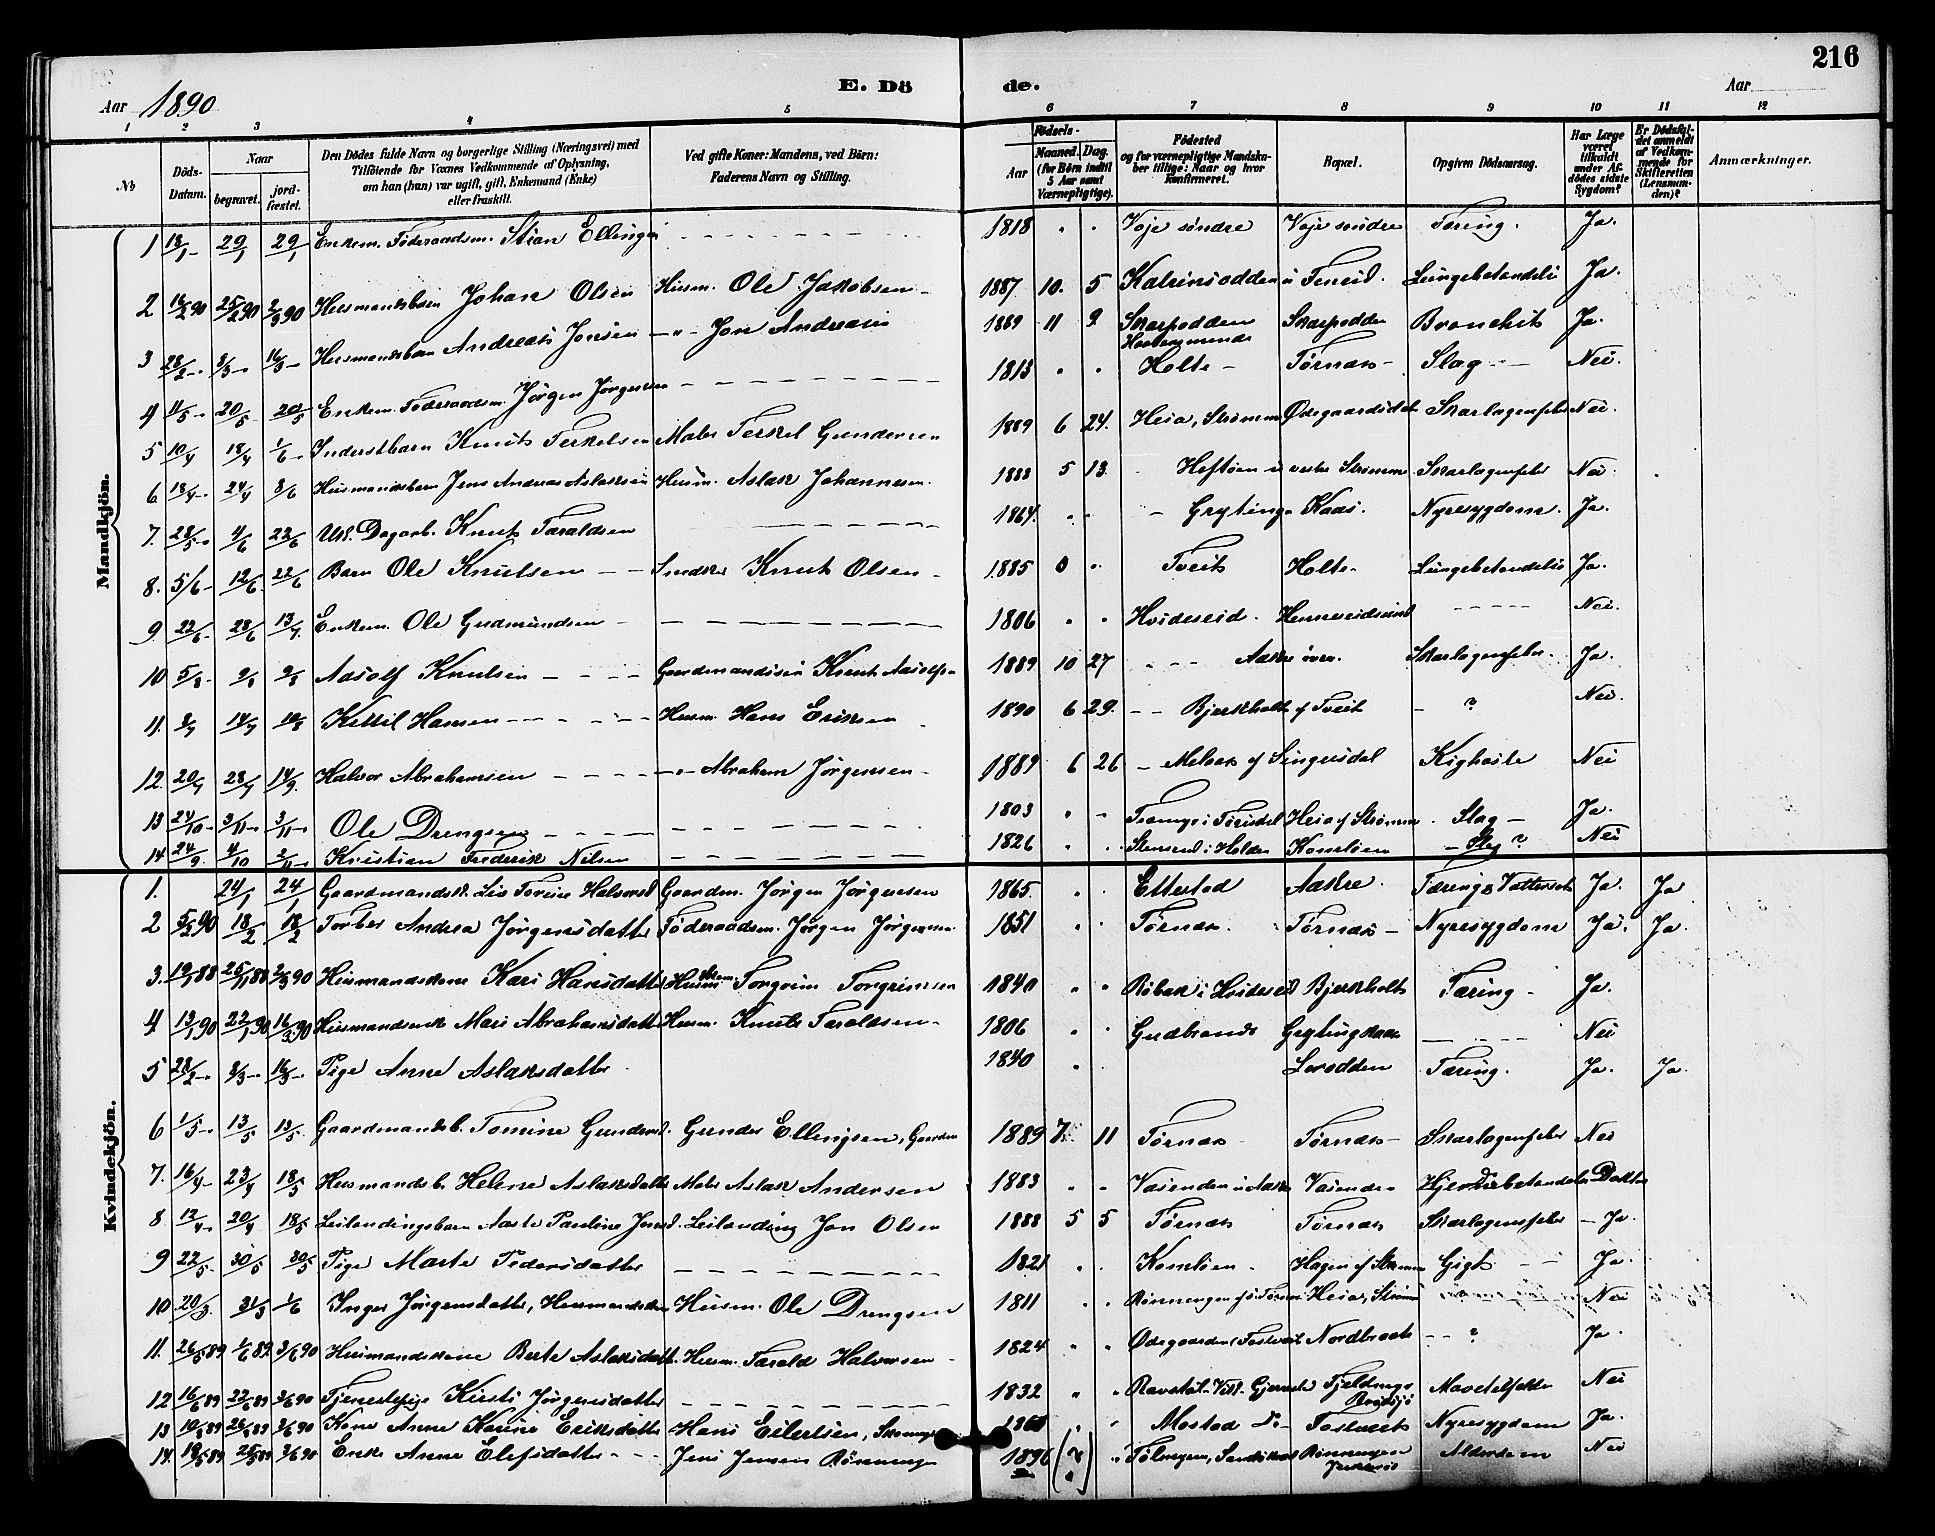 216
E. Dö de.
Aar 1890 Aar
1 2 3 4 5 6 7 8 9 10 11 12
No
Döds-Datum.
Naar
begravet.
jord-fæstet.
Den Dødes fulde Navn og borgerlige Stilling (Næringsvei) med Tilföiende for Voxnes Vedkommende af Oplysning, om han (hun) var ugift, gift, Enkemand (Enke) eller fraskilt.
Ved gifte Koner: Mandens, ved Börn: Faderens Navn og Stilling.
Födsels-
Aar
Maaned. Dag.
(for Børn indtil 5 Aar samt Værnepligtige).
Födested og for værnepligtige Mandskaber tillige: Naar og hvor Konfirmeret.
Bopæl.
Opgiven Dödsaarsag.
Har Læge været tilkaldt under Afdödes sidste Sygdom?
Er Dödsfaldet anmeldt af Vedkommende for Skifteretten (Lensmanden)?
Anmærkninger.
Mandkjön.
1 29/1 29/1 Enkem. Föderaadsm. Stian Ellingsen 1818 Voje söndre Voje söndre Tæring. Ja.
2 25/2 90 2/3 90 Husmandsbarn Johan Olsen Husm. Ole Jakobsen 1887 10. 5 Katrinsodden Lungebetændelse Ja.
3 28/2 3/3 16/3 Husmandsbarn Andreas Jensen Jon Andreasen 1889 11 9 Skarpodden Skarpodden Bronchit Ja.
4 11/5 20/5 20/5 Enkem. Föderaadsm. Jörgen Jörgensen 1813 Holte Törnæs Slag Nei.
5 10/4 18/4 1/6 Inderstbarn Knut Terkelsen Mater Terkel Gundersen 1889 6 24. Heia, Strömme Skarlagensfeber Nei.
6 13/4 24/4 3/6 Husmandsbarn Jens Andreas Aslaksen Husm. Aslak Johannesen. 1888 5 13 Heftöen u vestre Strömme Skarlagensfeber Nei.
7. 28/5 4/6 22/6 Ug. Dagarb. Knut Taraldsen 1864. Gryting Kaas. Nyresygdom. Ja.
8. 5/6 12/6 22/6 Barn Ole Knutsen Knut Olsen 1885 0 Tveit Holte Lungebetændelse Ja.
9 22/6 28/6 13/7 Enkem. Ole Gudmundsen 1806 Hvideseid. Henneseidsund Nei.
10 5/8 9/8 9/8 Adolf Knutsen Gaardmandssön Knut Adolfsen 1889 10 27 Aaskre övre. Skarlagensfeber. Ja.
11. 14/7 10/8 Kittil Hansen Husm. Hans Eriksen 1890 6 29. Bjerkholt af Tveit ? Nei.
12. 20/7 28/7 14/9 Halvor Abrahamsen Abraham Jörgensen 1889 6 26 af Singusdal Kighoste Nei
13 24/10 3/11 3/11 Ole Drengsen 1803 i Törisdal Heia af Strömme Slag Ja.
14. 24/9. 4/10 2/11 Kristian Frederik Nilsen 1826 i Holden Komlöen Slag ? Nei
Kvindekjön.
1. 24/1 24/1 Gaardmandsk. Liv Torine Halvorsd. Gaardm. Jörgen Jörgensen 1865. Ettestad Aaskre. Tæring & Vattersot Ja. Ja
2 5/2 90 18/2 18/2 Andrea Jörgensdatter Föderaadsm. Jörgen Jörgensen 1851 Törnæs. Törnæs Nyresygdom Ja. Ja.
3. 19/11 88 25/11 88 2/3 90 Husmandskone Kari Hansdatter Husm. Torgrim Torgrimsen 1840 Röbæk i Hvideseid Bjerkholt Tæring Ja.
4 13/1 90 22/1 90 16/3 90 Mari Abrahamsdatter Husm. Knut Taraldsen 1806 Gudbrands Grytingkaas Nei
5 28/2 3/3 16/3 Pige Anne Aslaksdatter 1840 Tæring. Ja. Ja.
6 1/5 13/5 13/5. Gaardmandsb. Tomine Gundersd. Gunder Ellingsen, Gaardm 1889 7. 11 Törnæs Törnæs Skarlagensfeber Nei
7. 16/4 23/4 18/5 Husmandsb. Helene Aslaksdatter Mater Aslak Andersen 1883 Vasenden Vasenden Hjernebetændelse
8 12/4 20/4 18/5 Leilændingsbarn Aaste Pauline Jonsd. Leilænding Jon Olsen 1888 5 5 Törnæs Törnæs Skarlagensfeber Ja.
9 22/5 30/5 30/5 Pige Marte Pedersdatter 1821 Komlöen. Hagen af Strömme Gigt. Ja.
10 20/3. 31/3 1/6 Inger Jörgensdatter, Husmandskone Husm. Ole Drengsen 1811 Rönningen Heia, Strömme Nei
11. 26/5 89 1/6 89 3/6 90 Husmandskone Berte Aslaksdatter Husm. Tarald Halvorsen 1824 Nordbraaten ? Ja.
12 16/6 89 22/6 89 3/6 90 Tjenestepige Kirsti Jörgensdatter 1832 Nei
13 26/6 89 3/6 90 Kone Anne Karine Eriksdatter Hans Eilertsen, Mostad Do Tostveit Nyresygdom Ja.
14. 25/5 89 3/6 90 Enke Anne Elefsdatter Jens Jensen Rönningen 1896 (?) Rönningen Alderdom Nei